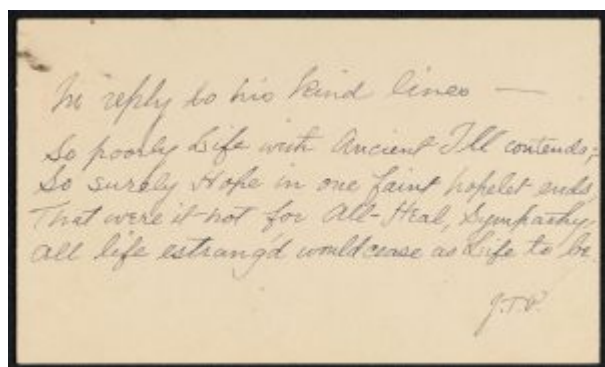 In reply to his kind lines —
So poorly Life with Ancient Ill contends;
So surely Hope in one faint hopelet ends,
That were it not for All-Heal, Sympathy,
All life estrang'd would cease as Life to be.
J.T.P.